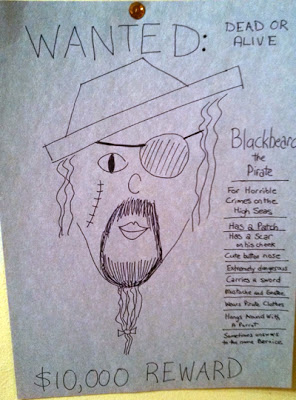 WANTED:
DEAD OR
ALIVE
Blackbeard
the
Pirate
For Horrible
Crimes on the
High Seas
Has a Patch
Has a Scar
on his cheek
Cute button nose
Extremely dangerous
Carries a sword
Mustache and Goatee
Wears Pirate Clothes
Hangs Around With
A Parrot
Sometimes answers
to the name Bernice
$10,000 REWARD